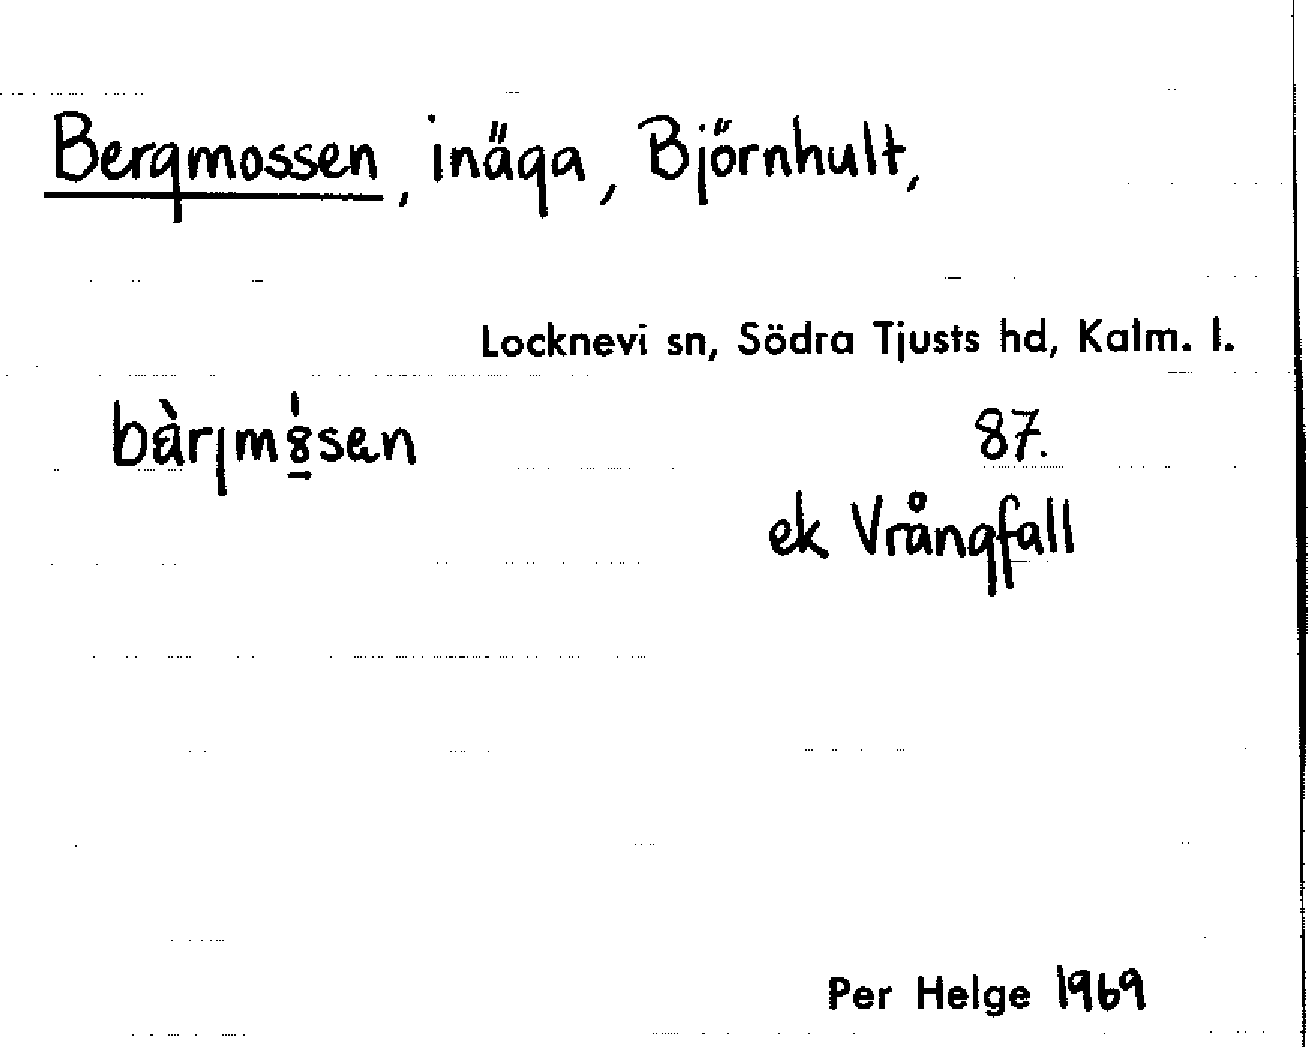 Bergmossen, inäga, Björnhult,
Locknevi sn, Södra Tjusts hd, Kalm. l.
bàrjm8̱́sen 87.
ek Vrångfall
Per Helge 1969